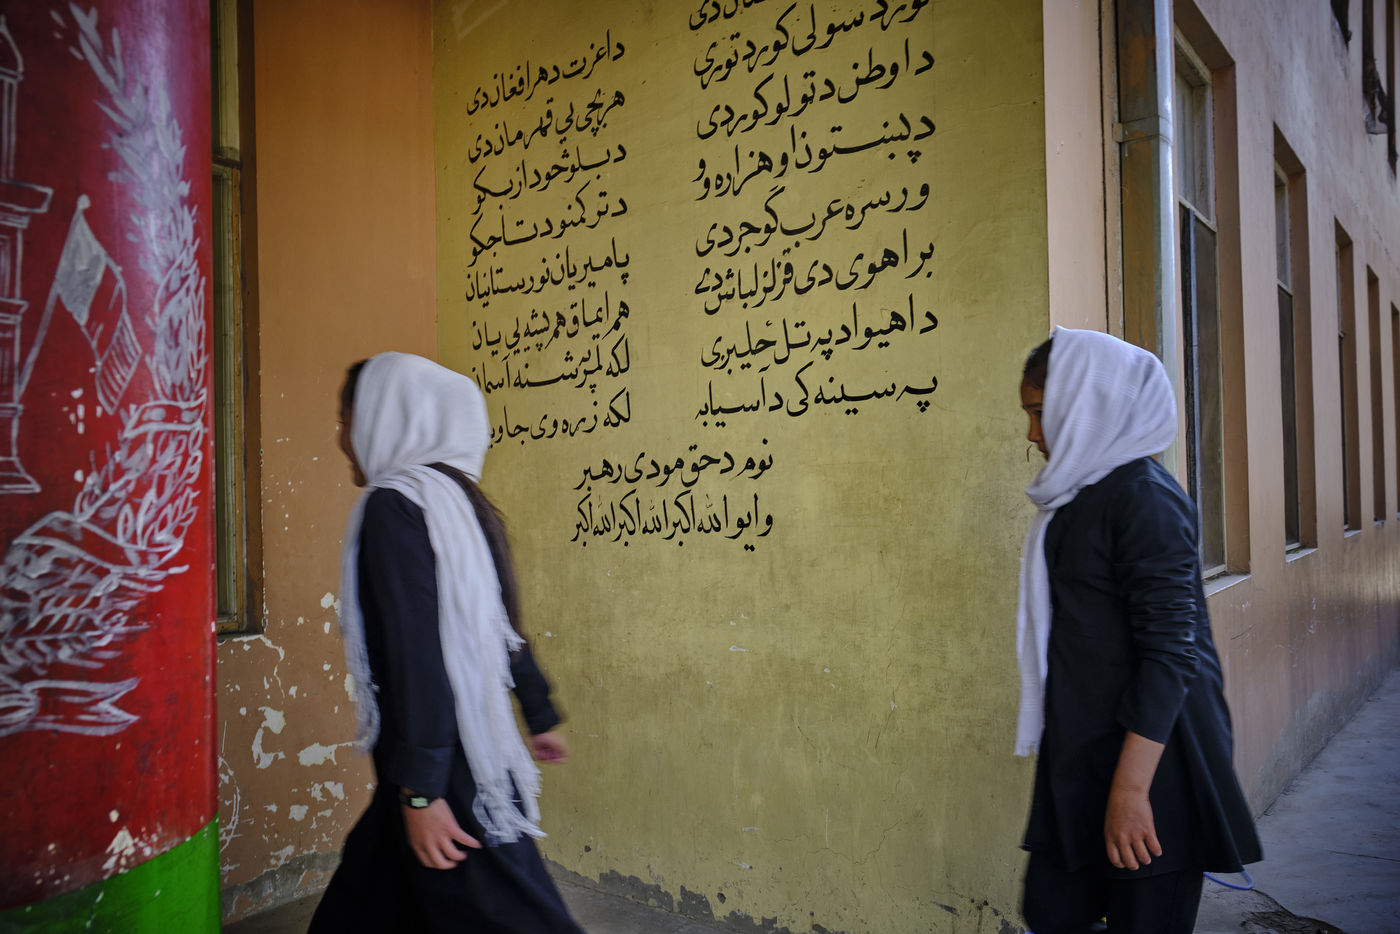 دی
کور د سولی کور د توری
دا عزت د هر افغان دی
دا وطن د ټولو کور دی
هر بچی یی قهرمان دی
د پښتون او هزاره وو
د بلوڅو د ازبکو
ورسره عرب ګوجر دی
د ترکمنو د تاجکو
براهوی دی قزلباش دی
پامیریان نورستانیان
دا هیواد به تل ځلیږی
هم ایماق هم
په سینه کی د آسیا به
لکه لمر پر شنه آسمان
لکه زړه وی
نوم د حق مو دی رهبر
وایو الله اکبر الله اکبر الله اکبر